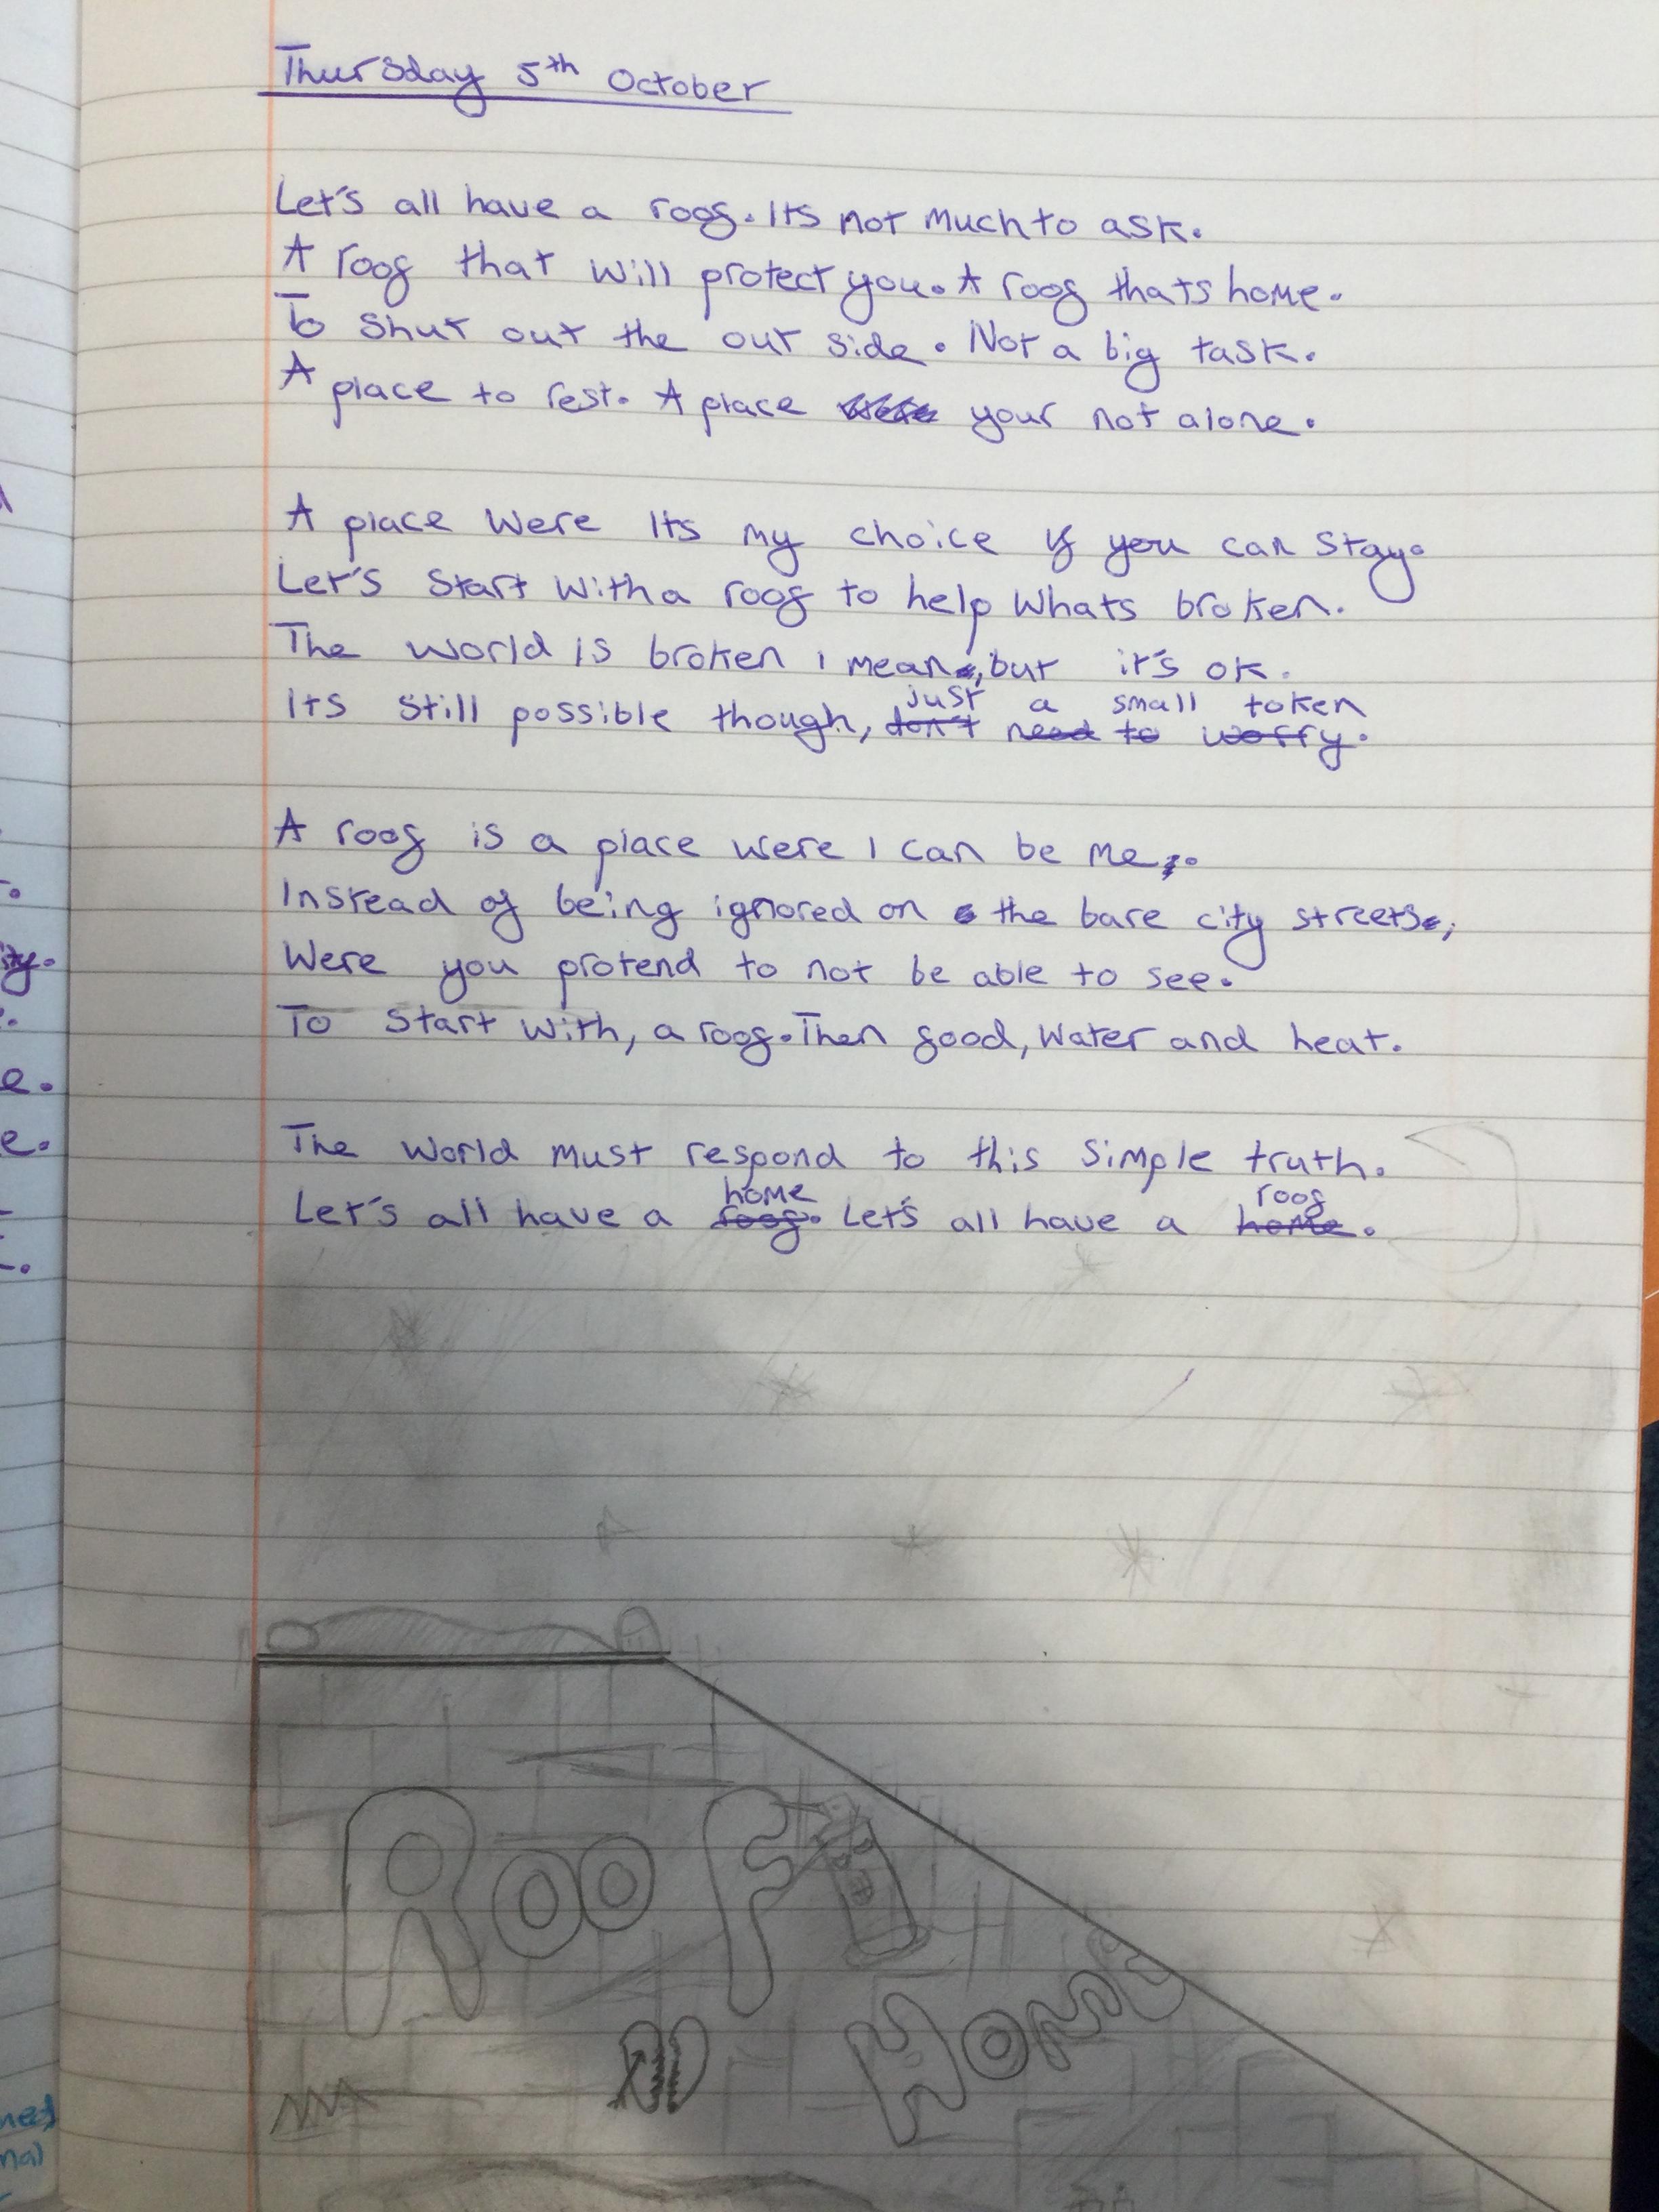 Thursday 5th October
Let's all have a roof. Its not much to ask.
A roof that will protect you. A roof thats home.
To shut out the out side. Not a big task.
A place to rest. A place were your not alone.
A place were its my choice if you can stay.
Let's start with a roof to help whats broken.
The world is broken I mean, but it's ok.
Its still possible though, just a small token
don't need to worry.
A roof is a place were I can be me.
Instead of being ignored on the bare city streets,
Were you protend to not be able to see.
To start with, a roof. Then food, water and heat.
The world must respond to this simple truth.
Let's all have a home roof. Let's all have a roof home.
ROOF
HOME